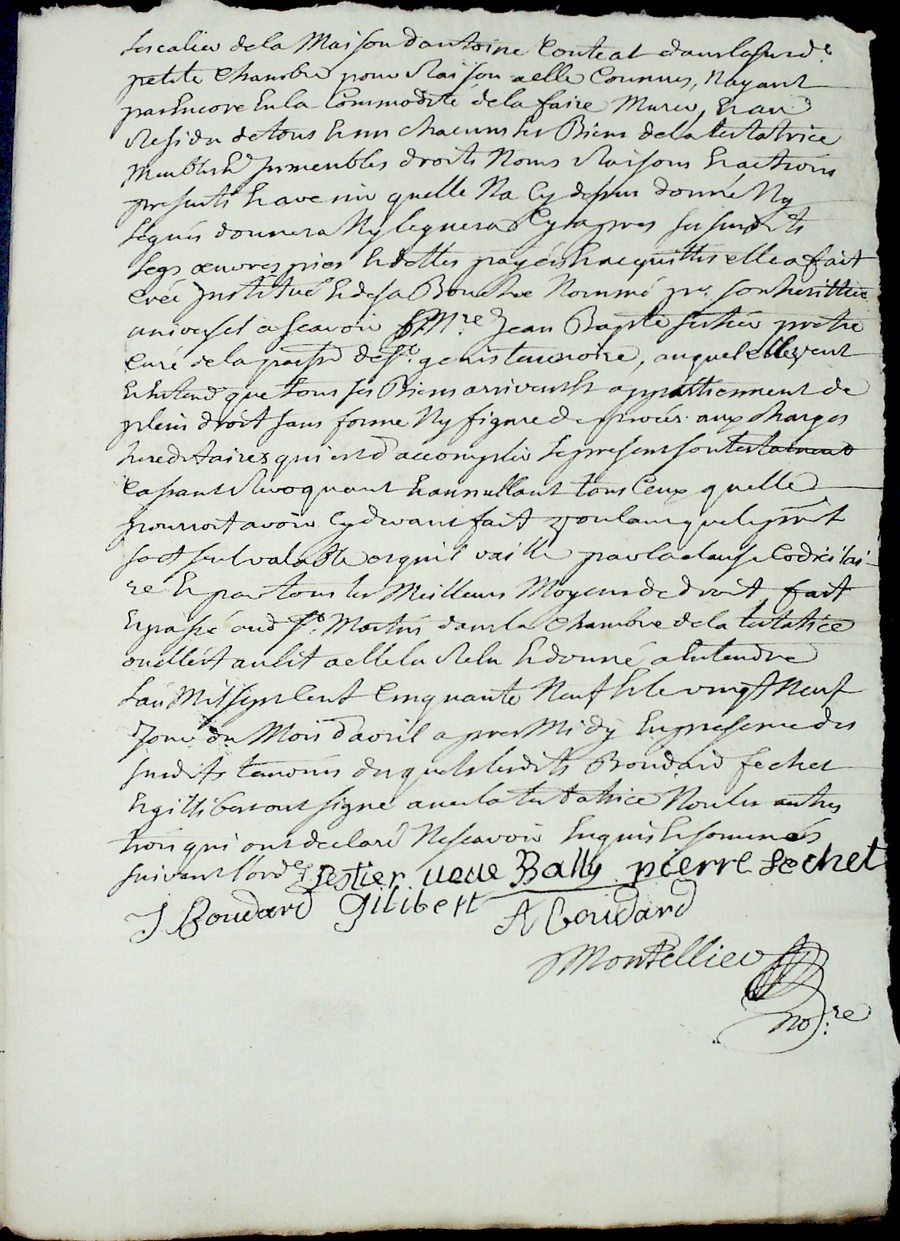 lescalier de la Maison dantoine Conteat dans lasusde.
petite Chambre pour Raison a elle Connue, Nayant
pas Encore Eu la Commodité de la faire Murer, Et au
Residu de tous Et uns chacuns les Biens de la testatrice
Meubles Et Immeubles droits Noms Raisons Et actions
presents Et avenir quelle Na Cy dessus donné Ny
legués donnera Ny leguera Cy apres ses susdits
legs œuvres pies Et dettes payés Et acquittés elle a fait
créé Institué Et de sa Bouche Nommé pr. son heritier
universel a scavoir Mre Jean Bapte pretre
curé de la parsse de St. genis terrenoire, auquel elle veut
Et Entend que tous ses Biens arrivent Et appartiennent de
plein droit sans forme Ny figure de procés aux charges
hereditaires qui est d'accomplir le present son testament
Cassant Revoquant Et annullant tous Ceux quelle
pourroit avoir Cy devant fait voulant que le pnt
soit seul valable et quil vaille par la clause Codicilai-
re Et par tous les Meilleurs Moyens de droit, fait
Et passé aud St. Martin dans la Chambre de la testatrice
ou elle est au lit a elle lu Relu Et donné a Entendre
Lan Mil sept Cent Cinquante Neuf Et le vingt Neuf
Jour du Mois d'avril apres Midy En presence des
susdits temoins desquels lesdits Boudard sechet
Et gillibert ont signé avec la testatrice Non les autres
trois qui ont declaré Ne scavoir Enquis Et sommés
suivant lorde. Testier veue Bally pierre sechet
J Boudard Gilibert A Coudard
Montellier
nore